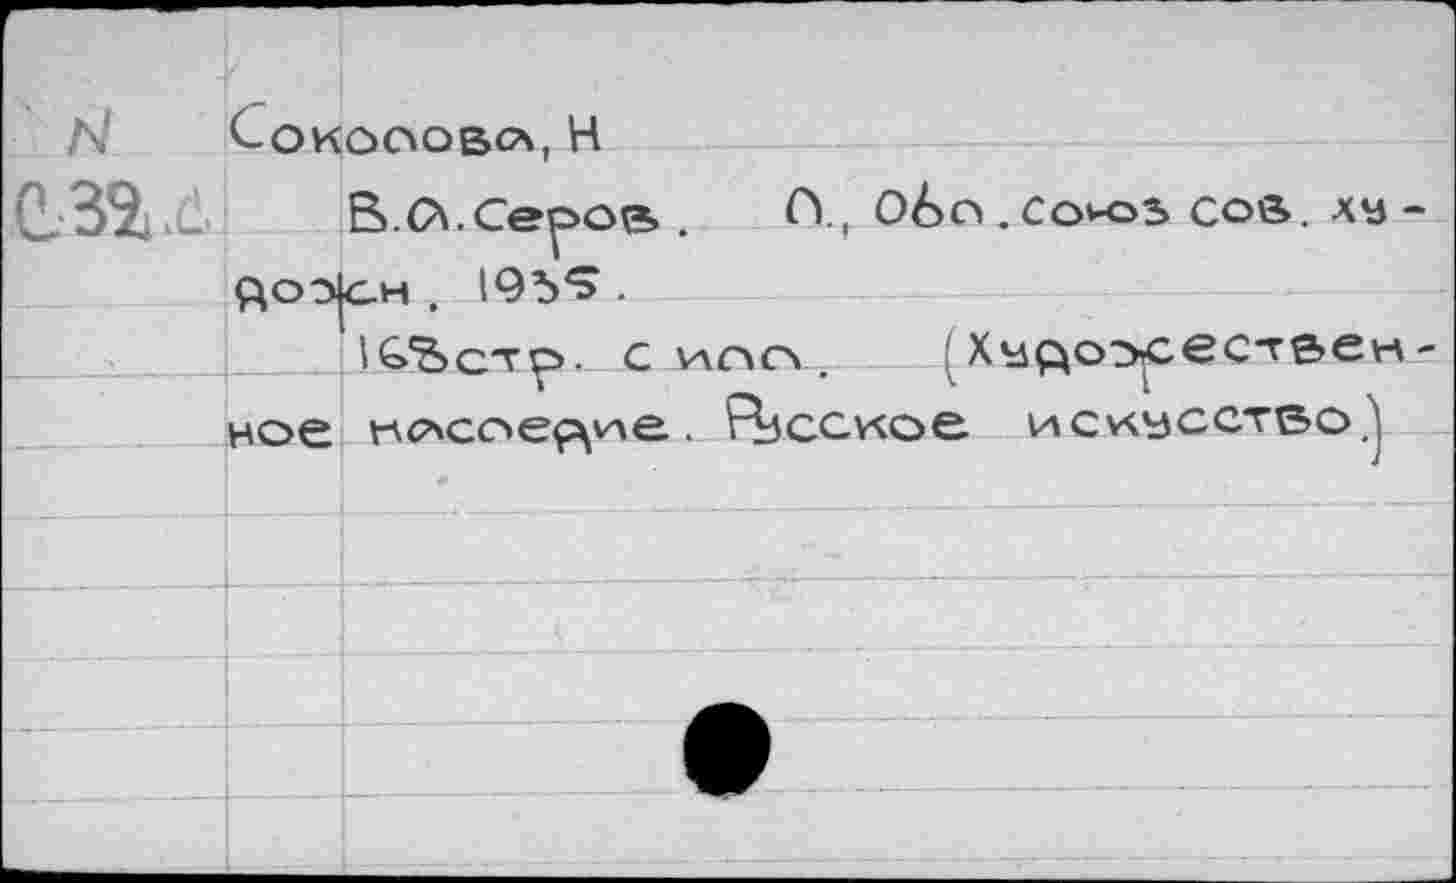 N Соколова, Н
С32 В.А.Серов. Л., Обл.союз сов. ху-
дожн. 1935.
163стр. с илл. (Художествен-
ное наследие. Русское искусство.)